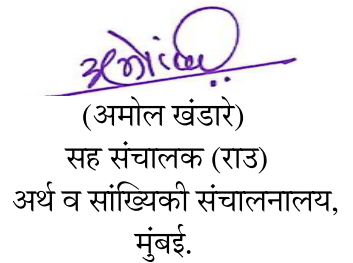 (अमोल खंडारे)
सह संचालक (राउ)
अर्थ व सांख्यिकी संचालनालय,
मुंबई.